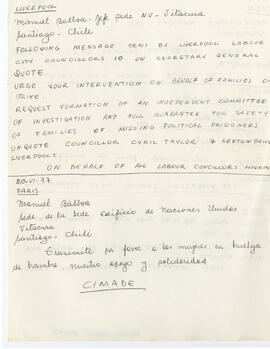 LIVERPOOL
Manuel Balboa - Jefe sede NU - Vitacura
Santiago - Chile
FOLLOWING MESSAGE SENT BY LIVERPOOL LABOUR
CITY COUNCILLORS TO UN SECRETARY GENERAL
QUOTE
URGE YOUR INTERVENTION ON BEHALF OF FAMILIES ON
REQUEST FORMATION OF AN INDEPENDENT COMMITTEE
OF INVESTIGATION AND FULL GUARANTEE FOR SAFETY
OF FAMILIES OF MISSING POLITICAL PRISONERS
UNQUOTE COUNCILLOR CYRIL TAYLOR 7 SEFTON DRIVE
LIVERPOOL 8
ON BEHALF OF ALL LABOUR COUNCILLORS LIVERPOOL
20-VI-77
PARIS
Manuel Balboa
Jefe de la sede Edificio de Naciones Unidas
Vitacura
Santiago - Chile
Transmite por favor a las mujeres en huelga
de hambre nuestro apoyo y solidaridad
CIMADE